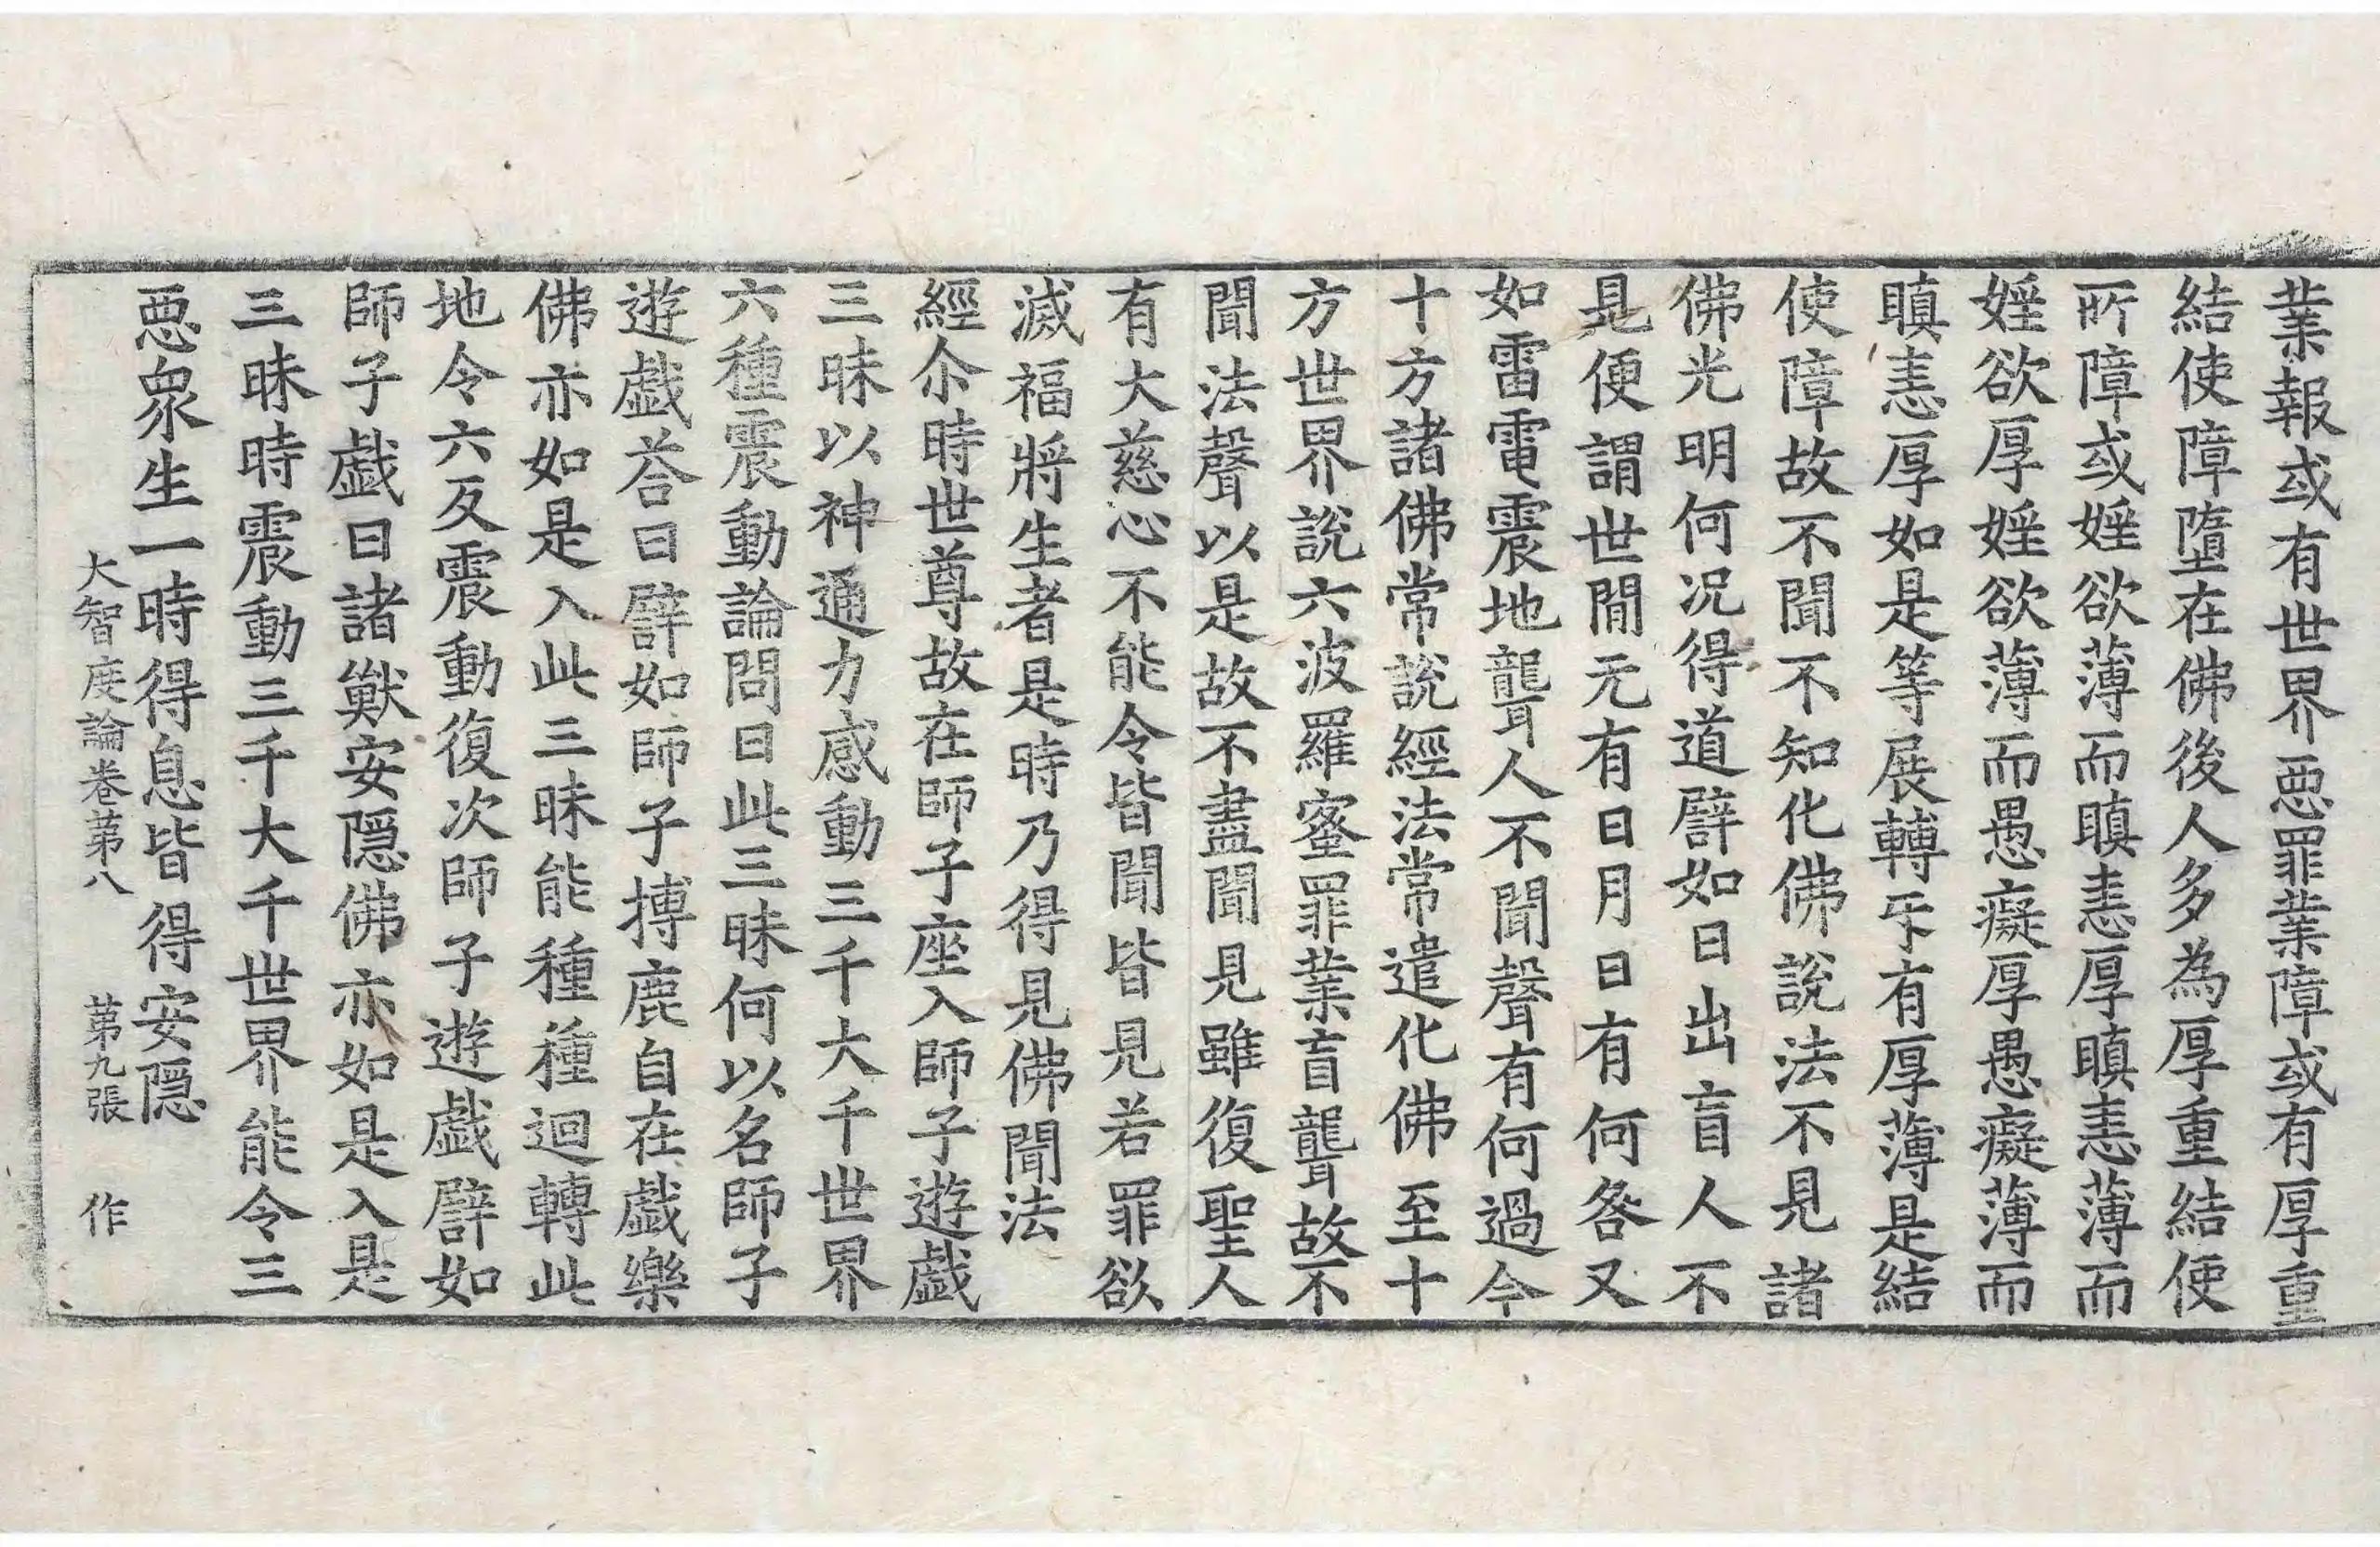 業報或有世界惡罪業障或有厚重
結使障墮在佛後人多為厚重結使
所障或婬欲薄而瞋恚厚瞋恚薄而
婬欲厚婬欲薄而愚癡厚愚癡薄而
瞋恚厚如是等展轉㸦有厚薄是結
使障故不聞不知化佛說法不見諸
佛光明何況得道譬如日出盲人不
見便謂世閒无有日月日有何咎又
如雷電震地聾人不聞聲有何過今
十方諸佛常說經法常遣化佛至十
方世界說六波羅蜜罪業盲聾故不
聞法聲以是故不盡聞見雖復聖人
有大慈心不能令皆聞皆見若罪欲
滅福將生者是時乃得見佛聞法
經尒時世尊故在師子座入師子遊戲
三昧以神通力感動三千大千世界
六種震動論問曰此三昧何以名師子
遊戲荅曰譬如師子搏鹿自在戲樂
佛亦如是入此三昧能種種迴轉此
地令六反震動復次師子遊戲譬如
師子戲日諸獸安隱佛亦如是入是
三昧時震動三千大千世界能令三
惡衆生一時得息皆得安隱
大智度論卷苐八　苐九張　作